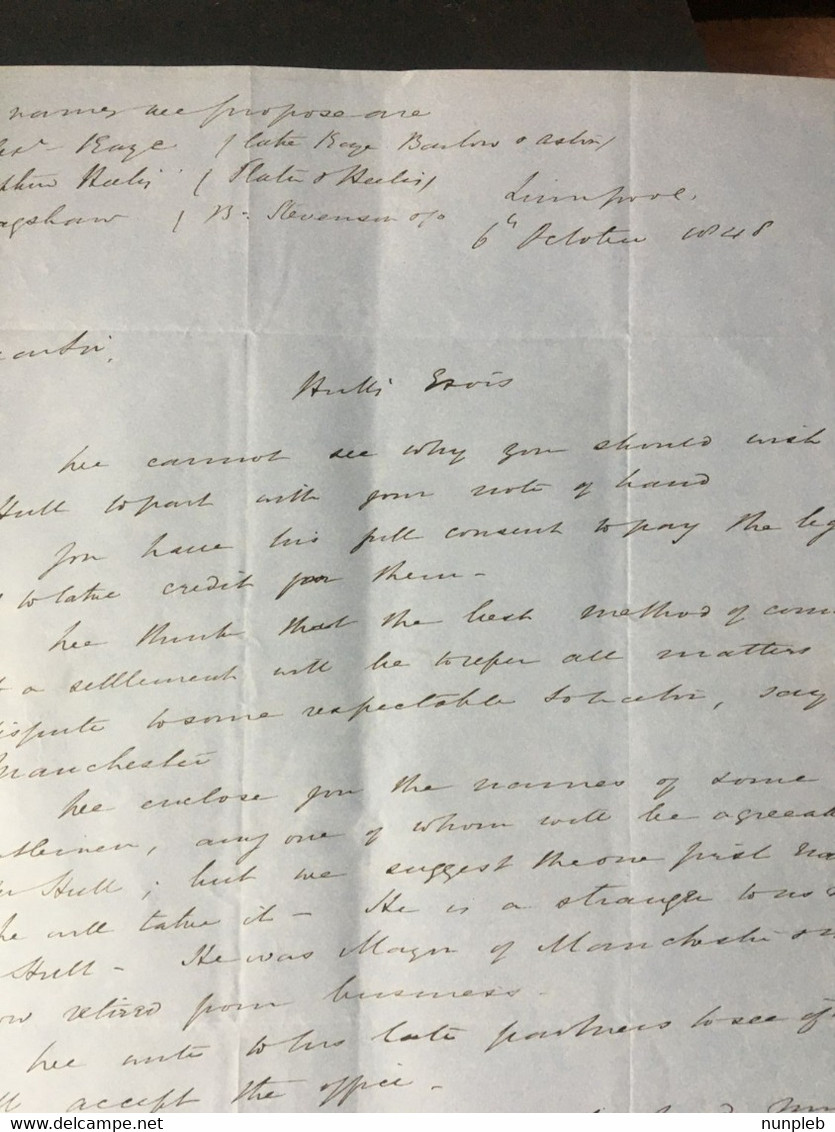 names we propose are
Kaye (late Kaye Barlow & Aston)
Heelis (Slater & Heelis)
agshaw ( B. Stevenson
Liverpool
6th October 1848
ear Sir,
Hull's Exors
We cannot see why you should wish
Hull to part with your note of hand
You have his full consent to pay the leg
to take credit for them -
We think that the best method of com
a settlement will be to refer all matters
ispute to some respectable Solicitor, say
Manchester
We enclose you the names of some
ntlemen, any one of whom will be agreeab
Hull; but we suggest the one first na
he will take it - He is a stranger to us &
Hull - He was Mayor of Manchester &
ow retired from business -
We write to his late partners to see if
accept the office -
nunpleb